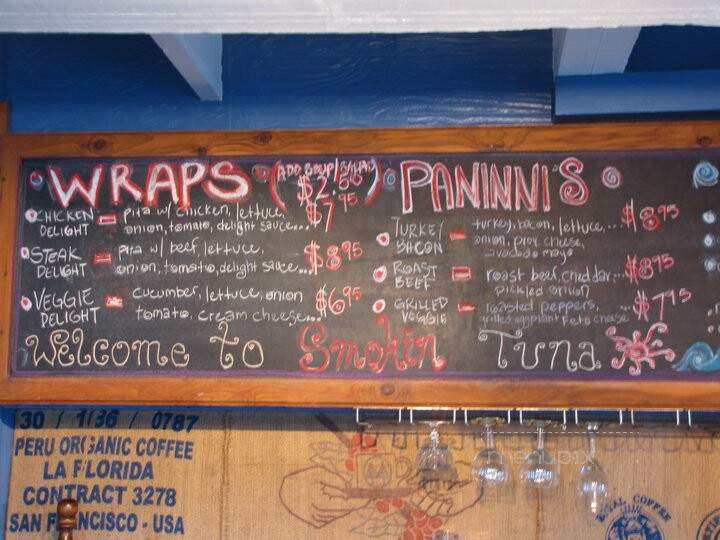 WRAPS (ADD SOUP/SALAD $2.50)
CHICKEN DELIGHT - pita w/ chicken, lettuce, onion, tomato, delight sauce... $7.95
STEAK DELIGHT - pita w/ beef, lettuce, onion, tomato, delight sauce... $8.95
VEGGIE DELIGHT - cucumber, lettuce, onion tomato, cream cheese... $6.95
PANINNI'S
TURKEY BACON - turkey, bacon, lettuce,... onion, prov. cheese, avocado mayo $8.95
ROAST BEEF - roast beef, cheddar... pickled onion $8.95
GRILLED VEGGIE - roasted peppers, ... grilled eggplant Feta cheese $7.95
Welcome to Smokin Tuna
30 / 1186 / 0787
PERU ORGANIC COFFEE
LA FLORIDA
CONTRACT 3278
SAN FRANCISCO - USA
ROYAL COFFEE